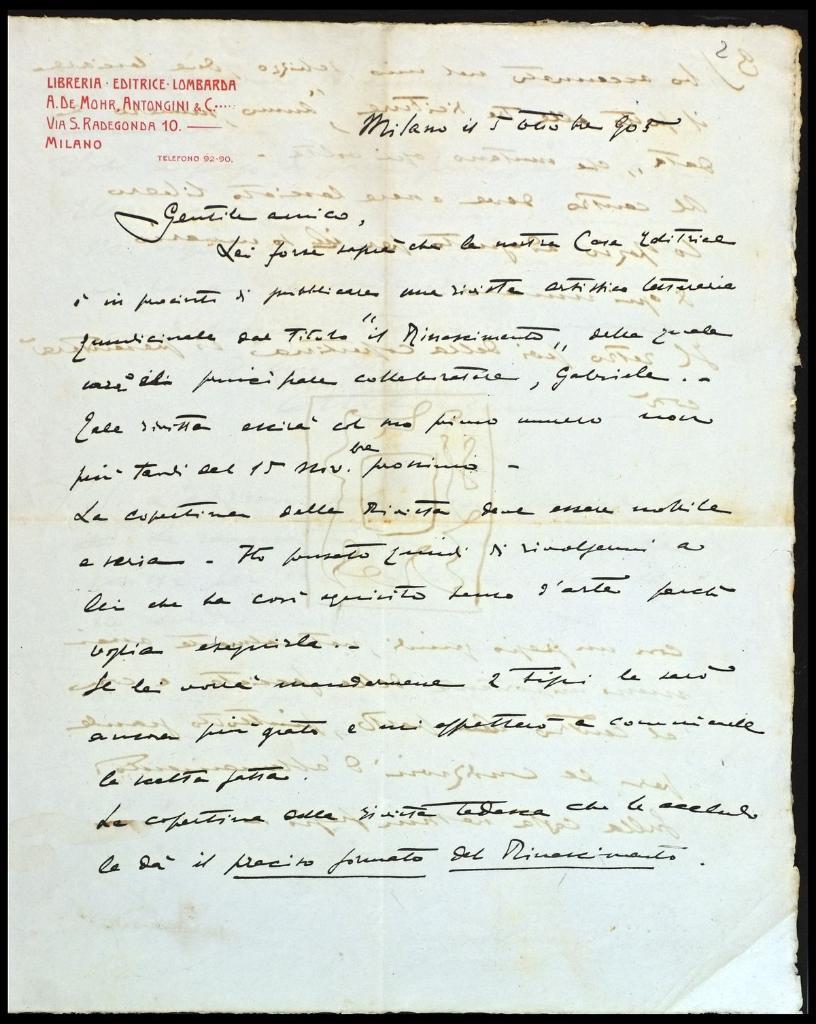 2
LIBRERIA · EDITRICE · LOMBARDA
A. DE MOHR, ANTONGINI & C.....
VIA S. RADEGONDA 10. —
MILANO
TELEFONO 92-90.
Milano il 5 Ottobre 905
Gentile amico,
Lei forse saprà che la nostra Casa Editrice
è in procinto di pubblicare una rivista artistica letteraria
quindicinale dal titolo "il Rinascimento", della quale
sarà principale collaboratore, Gabriele. -
Tale rivista escirà col suo primo numero non
più tardi del 15 Nov.bre prossimo -
La copertina della Rivista deve essere nobile
e seria - Ho pensato quindi di rivolgermi a
lei che ha così squisito senso d'arte perchè
voglia eseguirla. -
Se lei vorrà mandarmene 2 tipi le sarò
ancora più grato e mi affretterò a comunicarle
la scelta fatta.
La copertina della rivista tedesca che le accludo
le dà il preciso formato del Rinascimento.